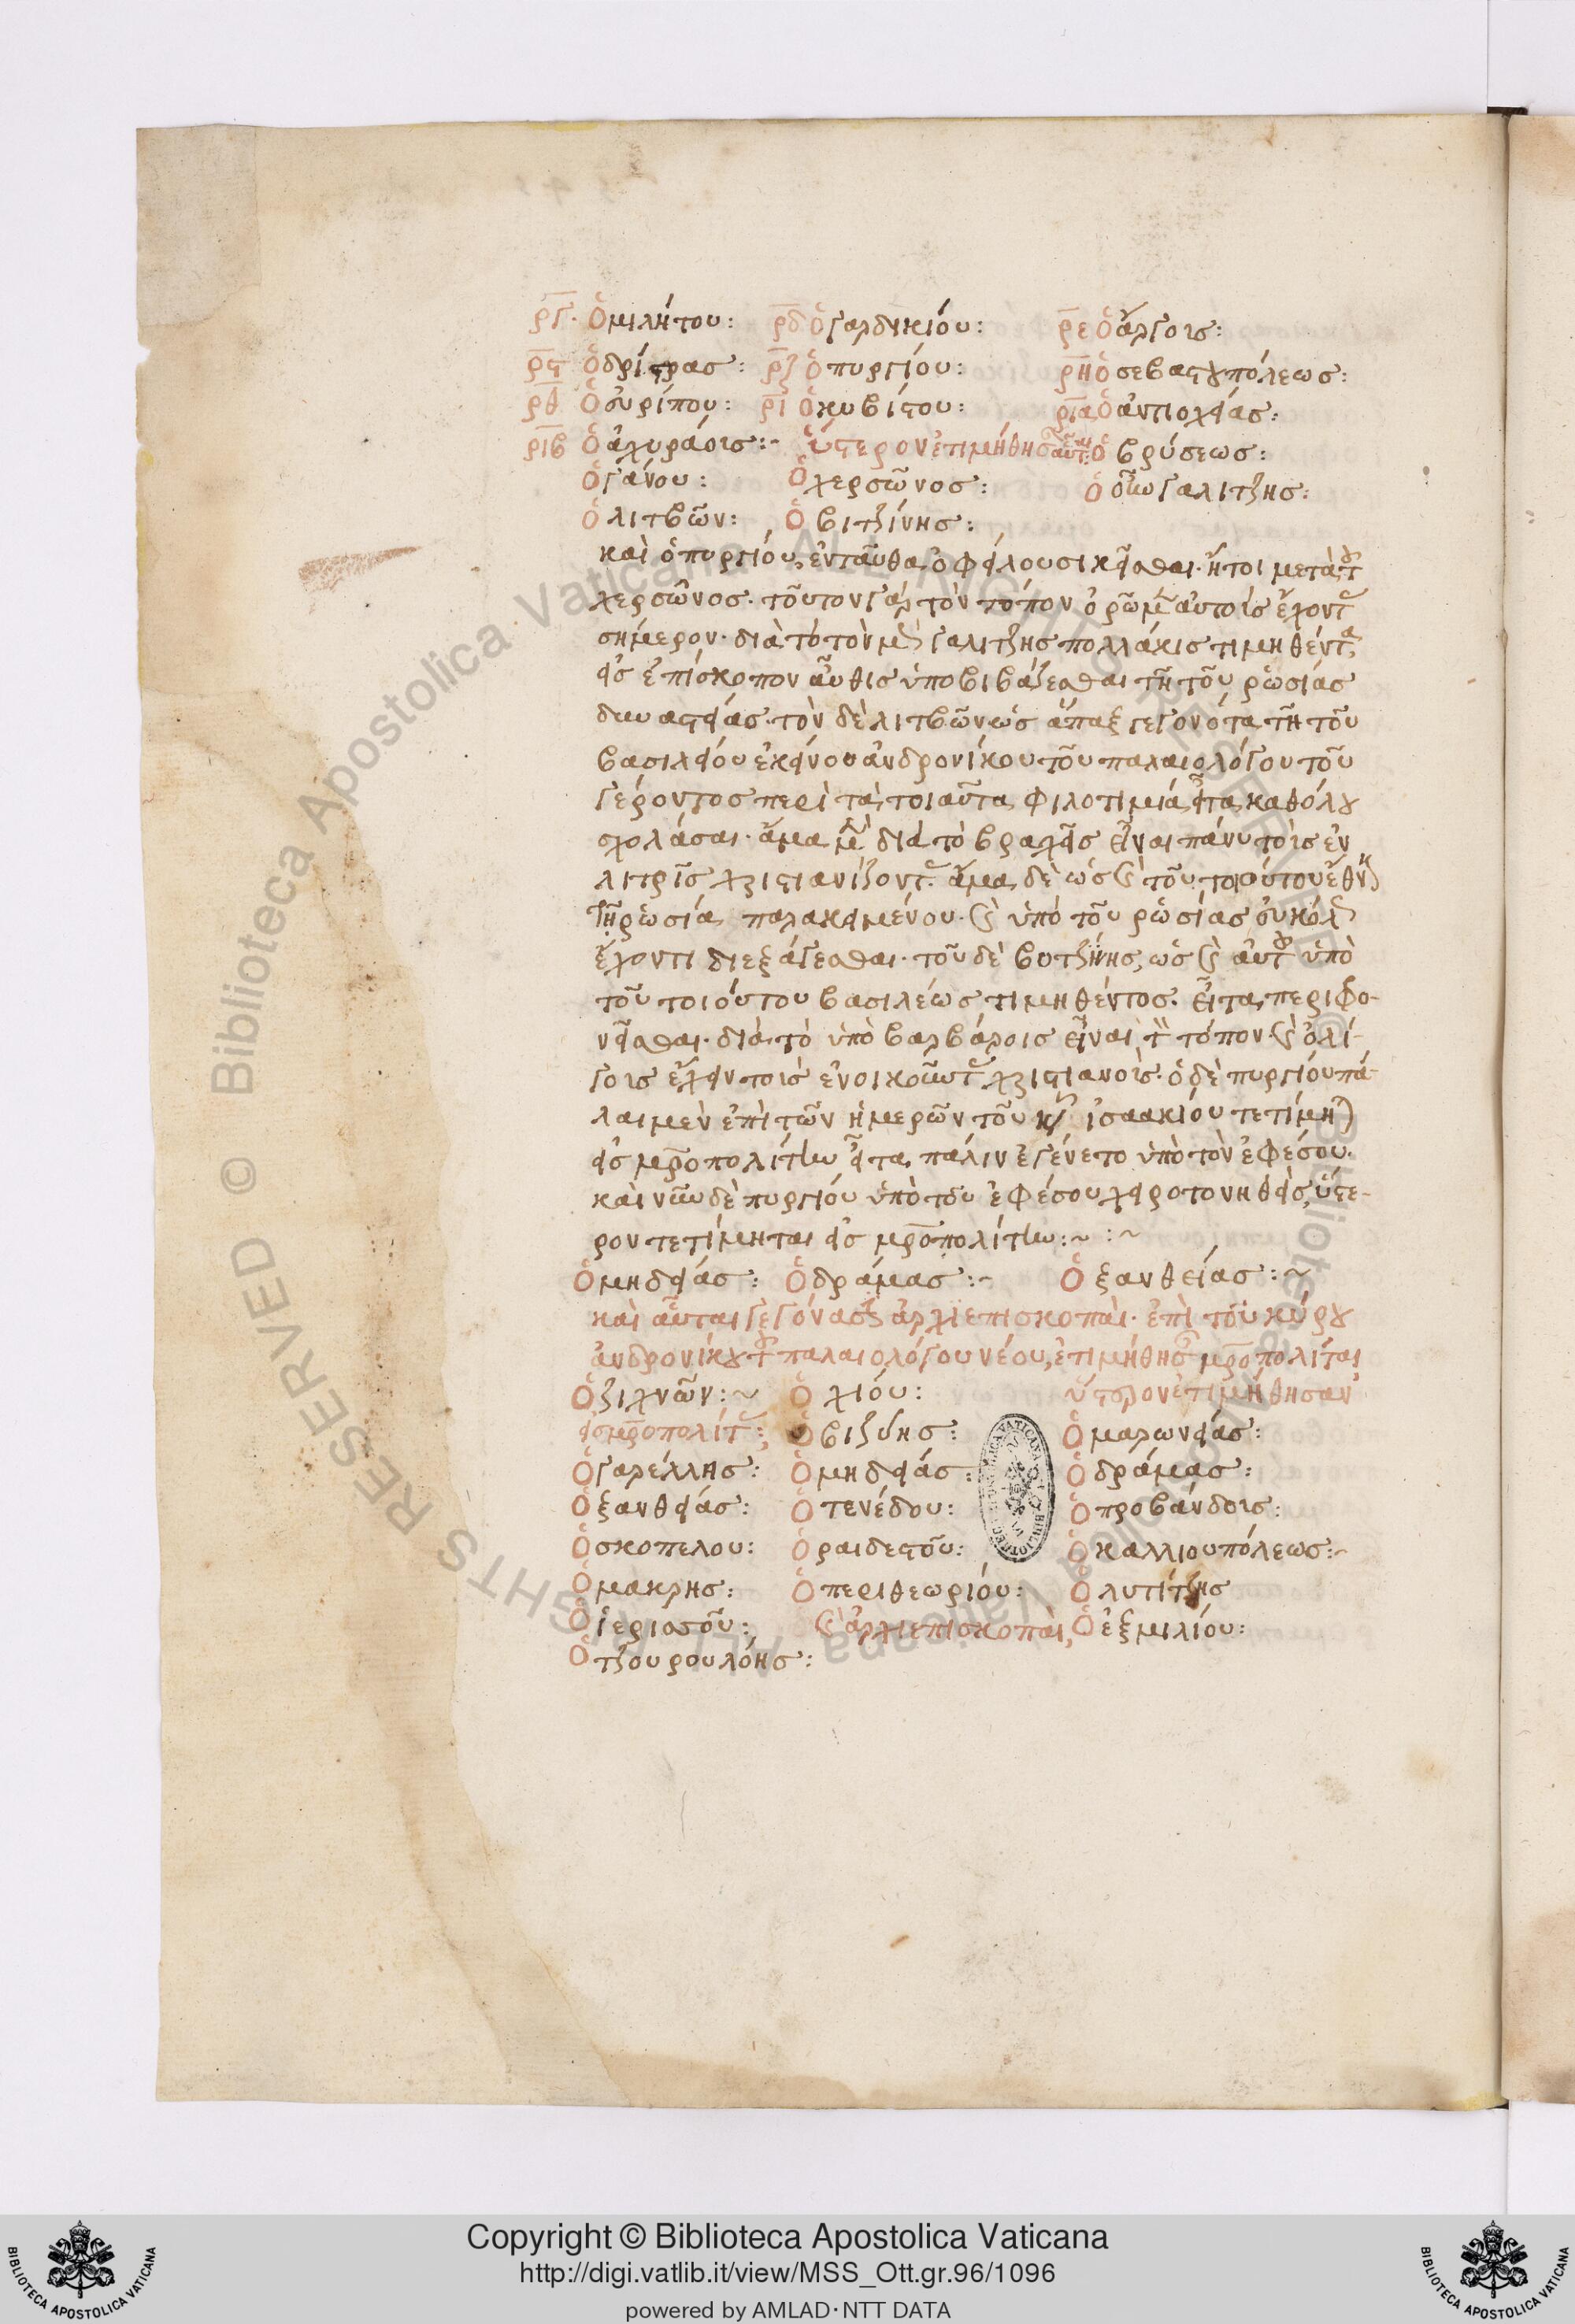 ργ· Ὁ μιλήτου: ρδ ὁ γαρδικίου: ρε ὁ ἄργοις:
ρϛ ὁ δρίστρας: ρζ ὁ πυργίου: ρη ὁ σεβαστουπόλεως:
ρθ Ὁ εὐρίπου: ρι ὁ κυβίστου: ρια ὁ ἀντιοχείας:
ριβ ὁ ἀχυράοις:~ ὕστερον ἐτιμήθησαν ὁ βρύσεως:
ὁ γάνου: ὁ χερσῶνος: ὁ γαλίτζης:
ὁ λιτβῶν: ὁ βιτζίνης:
καὶ ὁ πυργίου, ἐνταῦθα ὀφείλουσι κεῖσθαι· ἤτοι μετὰ τοῦ
χερσῶνος· τοῦτον γὰρ τὸν τόπον ὁρῶμεν αὐτοὺς ἔχοντας
σήμερον· διὰ τὸ τὸν μὲν γαλίτζης πολλάκις τιμηθέντα
εἰς ἐπίσκοπον αὖθις ὑποβιβάζεσθαι τῇ τοῦ ῥωσίας
δυναστείας· τὸν δὲ λιτβῶν ὡς ἅπαξ γεγονότα τῇ τοῦ
βασιλείου ἐκείνου ἀνδρονίκου τοῦ παλαιολόγου τοῦ
γέροντος περὶ τὰ τοιαῦτα φιλοτιμία εἶτα καθόλου
σχολάσαι· ἅμα μὲν διὰ τὸ βραχεῖς εἶναι πάνυ τοὺς ἐν
χριστιανίζοντας· ἅμα δὲ ὡς καὶ τοῦ τοιούτου ἔθνους
τῇ ῥωσίᾳ παρακειμένου· καὶ ὑπὸ τοῦ ῥωσίας εὐκόλως
ἔχοντι διεξάγεσθαι· τοῦ δὲ βιτζίνης, ὡς καὶ αὐτοῦ ὑπὸ
τοῦ τοιούτου βασιλέως τιμηθέντος· εἶτα περιφρο-
νεῖσθαι· διὰ τὸ ὑπὸ βαρβάροις εἶναι τὸν τόπον· καὶ ὀλί-
γοις ἔχειν τοὺς ἐνοικοῦντας χριστιανοὺς· ὁ δὲ πυργίου πά-
λαι μὲν ἐπὶ τῶν ἡμερῶν τοῦ κυροῦ ἰσαακίου τετίμηται
εἰς μητροπολίτην εἶτα πάλιν ἐγένετο ὑπὸ τὸν ἐφέσου·
καὶ νῦν δὲ πυργίου ὑπὸ τοῦ ἐφέσου χειροτονηθεὶς, ὕστε-
ρον τετίμηται εἰς μητροπολίτην:~ :~
Ὁ μηδείας: Ὁ δράμας:~ Ὁ ξανθείας:~
καὶ αὗται γεγόνασιν ἀρχιεπισκοπαὶ· ἐπὶ τοῦ κύρου
ἀνδρονίκου τοῦ παλαιολόγου νέου, ἐτιμήθησαν μητροπολίται
Ὁ ζιχνῶν:~ Ὁ χίου: ὕστερον ἐτιμήθησαν
εἰς μητροπολίτας: Ὁ βιζύης: Ὁ μαρωνείας:
Ὁ γαρέλλης: Ὁ μηδείας: Ὁ δράμας:
Ὁ ξανθείας: Ὁ τενέδου: Ὁ προβάνδοις:
Ὁ σκοπελου: Ὁ ραιδεστοῦ: Ὁ καλλιουπόλεως:~
Ὁ μακρης: Ὁ περιθεωρίου: Ὁ λυτίτζης
Ὁ ἱεριοσοῦ: καὶ ἀρχιεπισκοπαὶ, Ὁ ἑξμιλίου:
Ὁ τζουρουλόης:
Copyright © Biblioteca Apostolica Vaticana
http://digi.vatlib.it/view/MSS_Ott.gr.96/1096
powered by AMLAD·NTT DATA
BIBLIOTECA APOSTOLICA VATICANA
BIBLIOTECA APOSTOLICA VATICANA
© Biblioteca Apostolica Vaticana ALL RIGHTS RESERVED